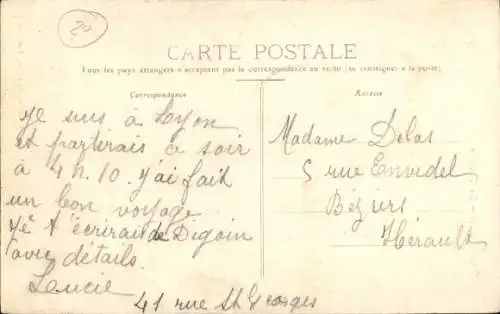 20
CARTE POSTALE
Tous les pays étrangers n'acceptent pas la correspondance au recto (se renseigner à la poste)
Correspondance
Adresse
Je suis à Lyon
et partirais ce soir
à 4 h. 10. J'ai fait
un bon voyage
Je t'écrirais de Digoin
avec détails.
Loucie
41 rue St Georges
Madame Delas
5 rue
Béziers
Hérault